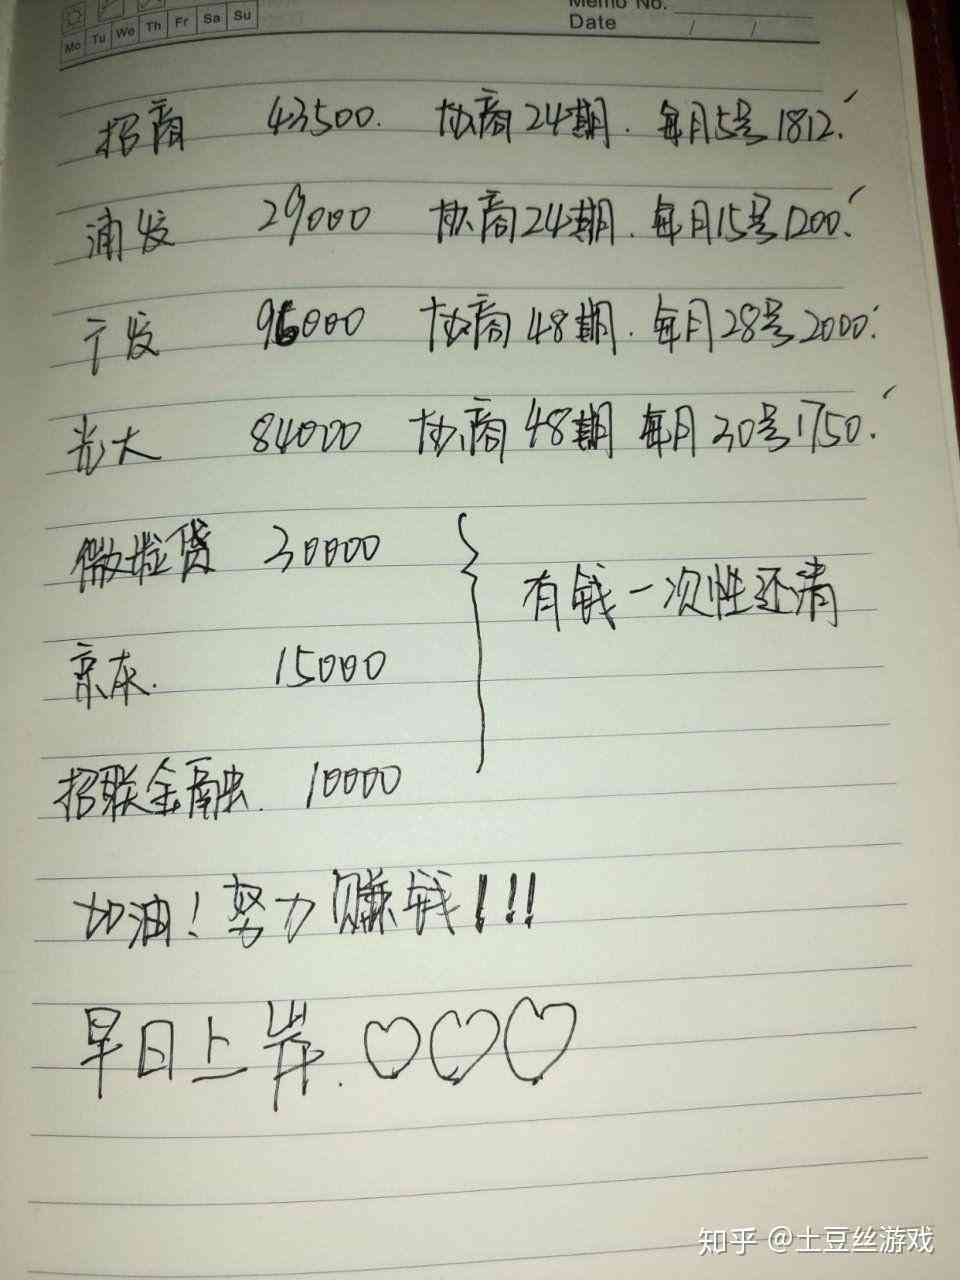 Memo No.
Mo Tu We Th Fr Sa Su
Date / /
招商 43500. 协商24期. 每月5号1812.
浦发 29000 协商24期. 每月15号1200.
广发 96000 协商48期. 每月28号2000.
光大 84000 协商48期 每月30号1750.
微粒贷 30000
有钱一次性还清
京东. 15000
招联金融. 10000
加油！努力赚钱！！！
早日上岸.
知乎 @土豆丝游戏